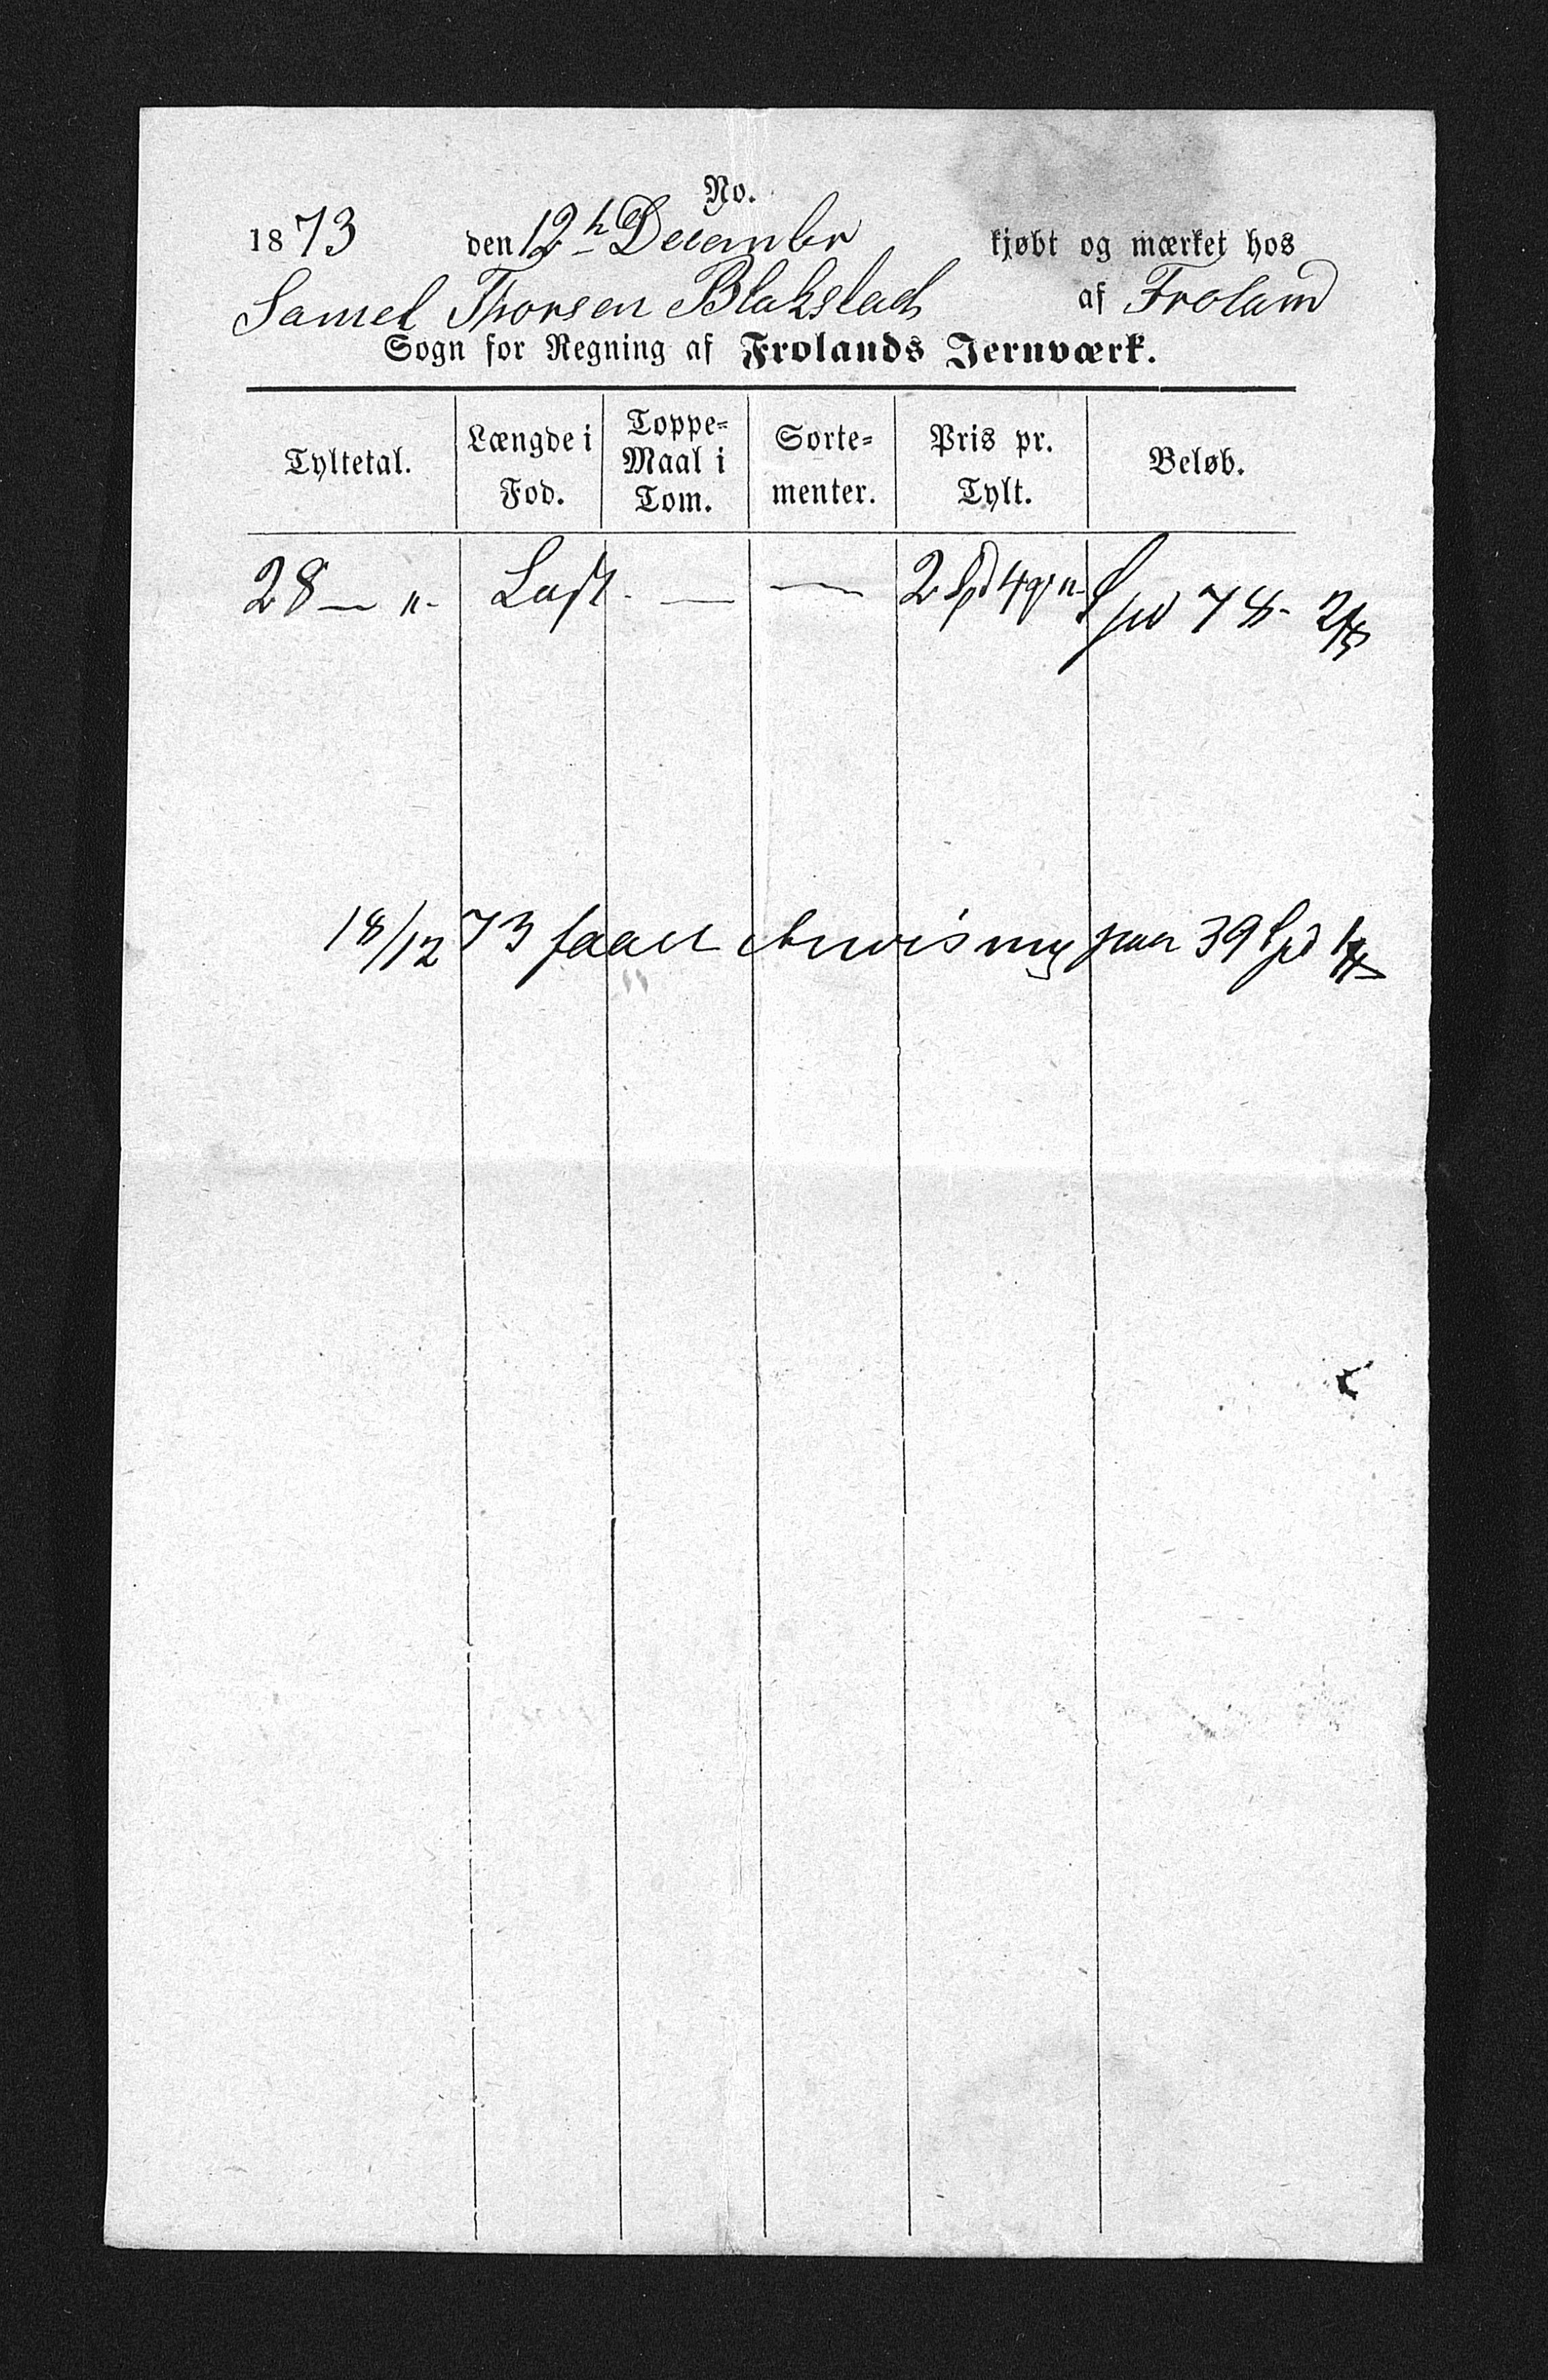 No.
1873 den 12te December kjøbt og mærket hos
Samel Thorsen Blakstad af Froland
Sogn for Regning af Frolands Jernværk.
Tyltetal. Længde i Fod. Toppe-Maal i Tom. Sorte-menter. Pris pr. Tylt. Beløb.
28 — " - Last - — — 2 Spd 4 " - Spd 78 - 2
18/12 73 faaet Anvisning paa 39 Spd 1